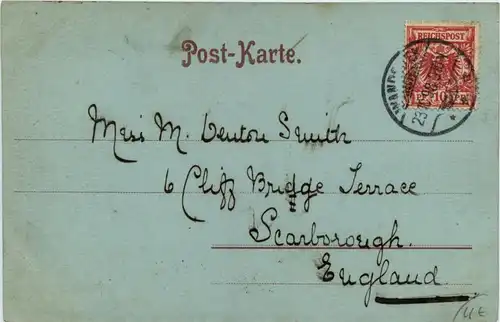 Post-Karte.
REICHSPOST
10 PF
23
Miss M. Venton Smith
6 Cliff Bridge Terrace
Scarborough.
England